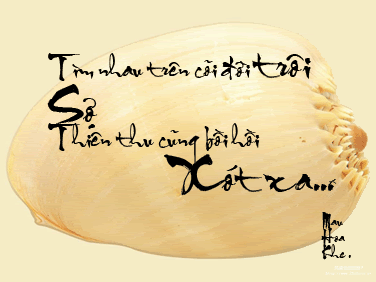 Tìm nhau trên cõi đời trôi
Sợ
Thiên thu cũng bồi hồi
Xót xa...
Mau
Hoa
Khe.